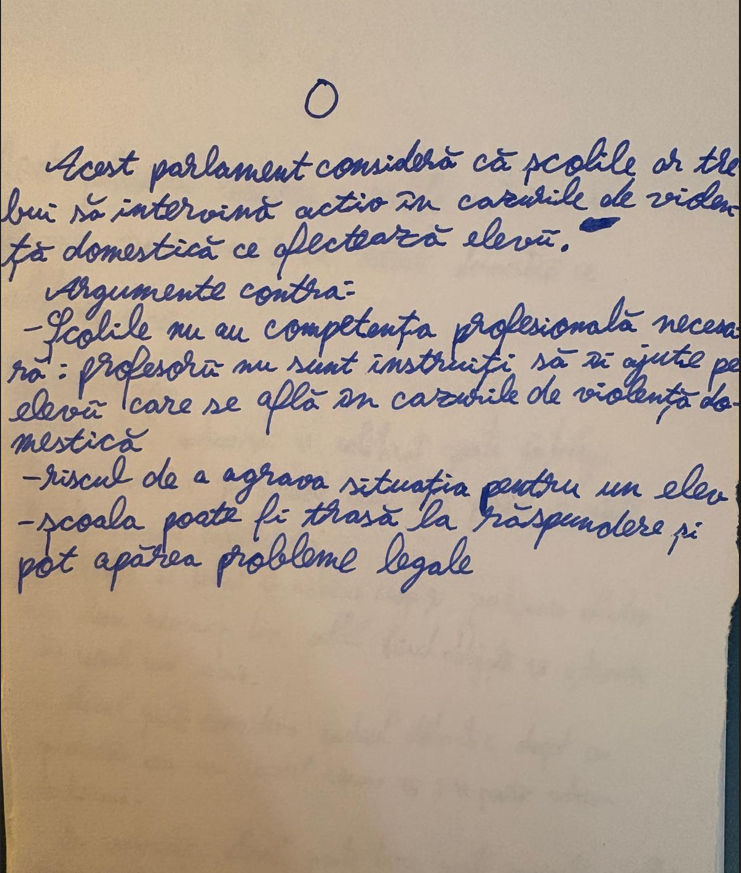 O
Acest parlament consideră că școlile ar tre
bui să intervină activ în cazurile de violen-
ță domestică ce afectează elevii.
Argumente contra:
-Școlile nu au competența profesională necesa-
ră: profesorii nu sunt instruiți să îi ajute pe
elevii care se află în cazurile de violență do-
mestică
-riscul de a agrava situația pentru un elev
-școala poate fi trasă la răspundere și
pot apărea probleme legale